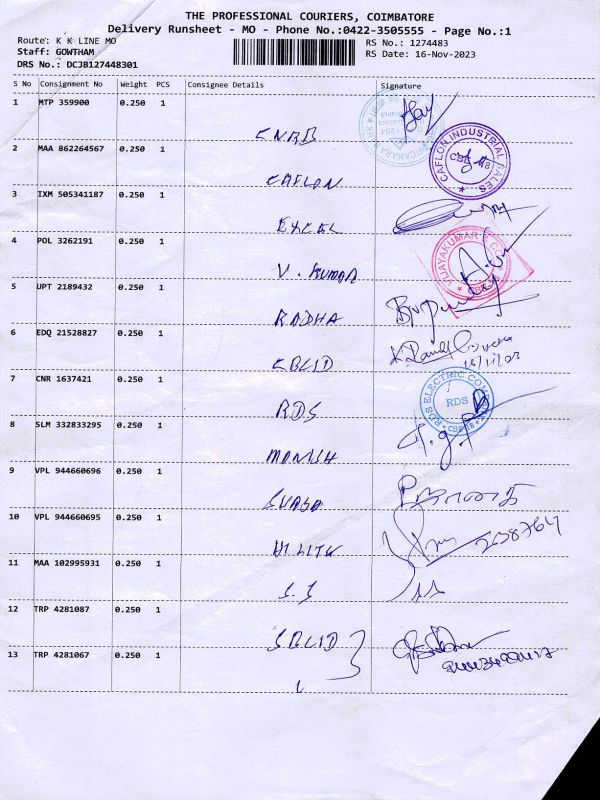 THE PROFESSIONAL COURIERS, COIMBATORE
Delivery Runsheet - MO - Phone No.:0422-3505555 - Page No.:1
Route: K K LINE MO
Staff: GOWTHAM
DRS No.: DCJB127448301
RS No.: 1274483
RS Date: 16-Nov-2023
S No Consignment No Weight PCS Consignee Details Signature
1 MTP 359900 0.250 1
CNRB
2 MAA 862264567 0.250 1
CAFLON INDUSTRIAL SALES
CAFLON
3 IXM 505341187 0.250 1
EXCEL
4 POL 3262191 0.250 1
V. KUMAR
5 UPT 2189432 0.250 1
RADHA
6 EDQ 21528827 0.250 1
16/11/23
7 CNR 1637421 0.250 1
RDS ELECTRIC
RDS
RDS
8 SLM 332833295 0.250 1
MANISH
9 VPL 944660696 0.250 1
10 VPL 944660695 0.250 1
11 MAA 102995931 0.250 1
S.S
12 TRP 4281087 0.250 1
13 TRP 4281067 0.250 1